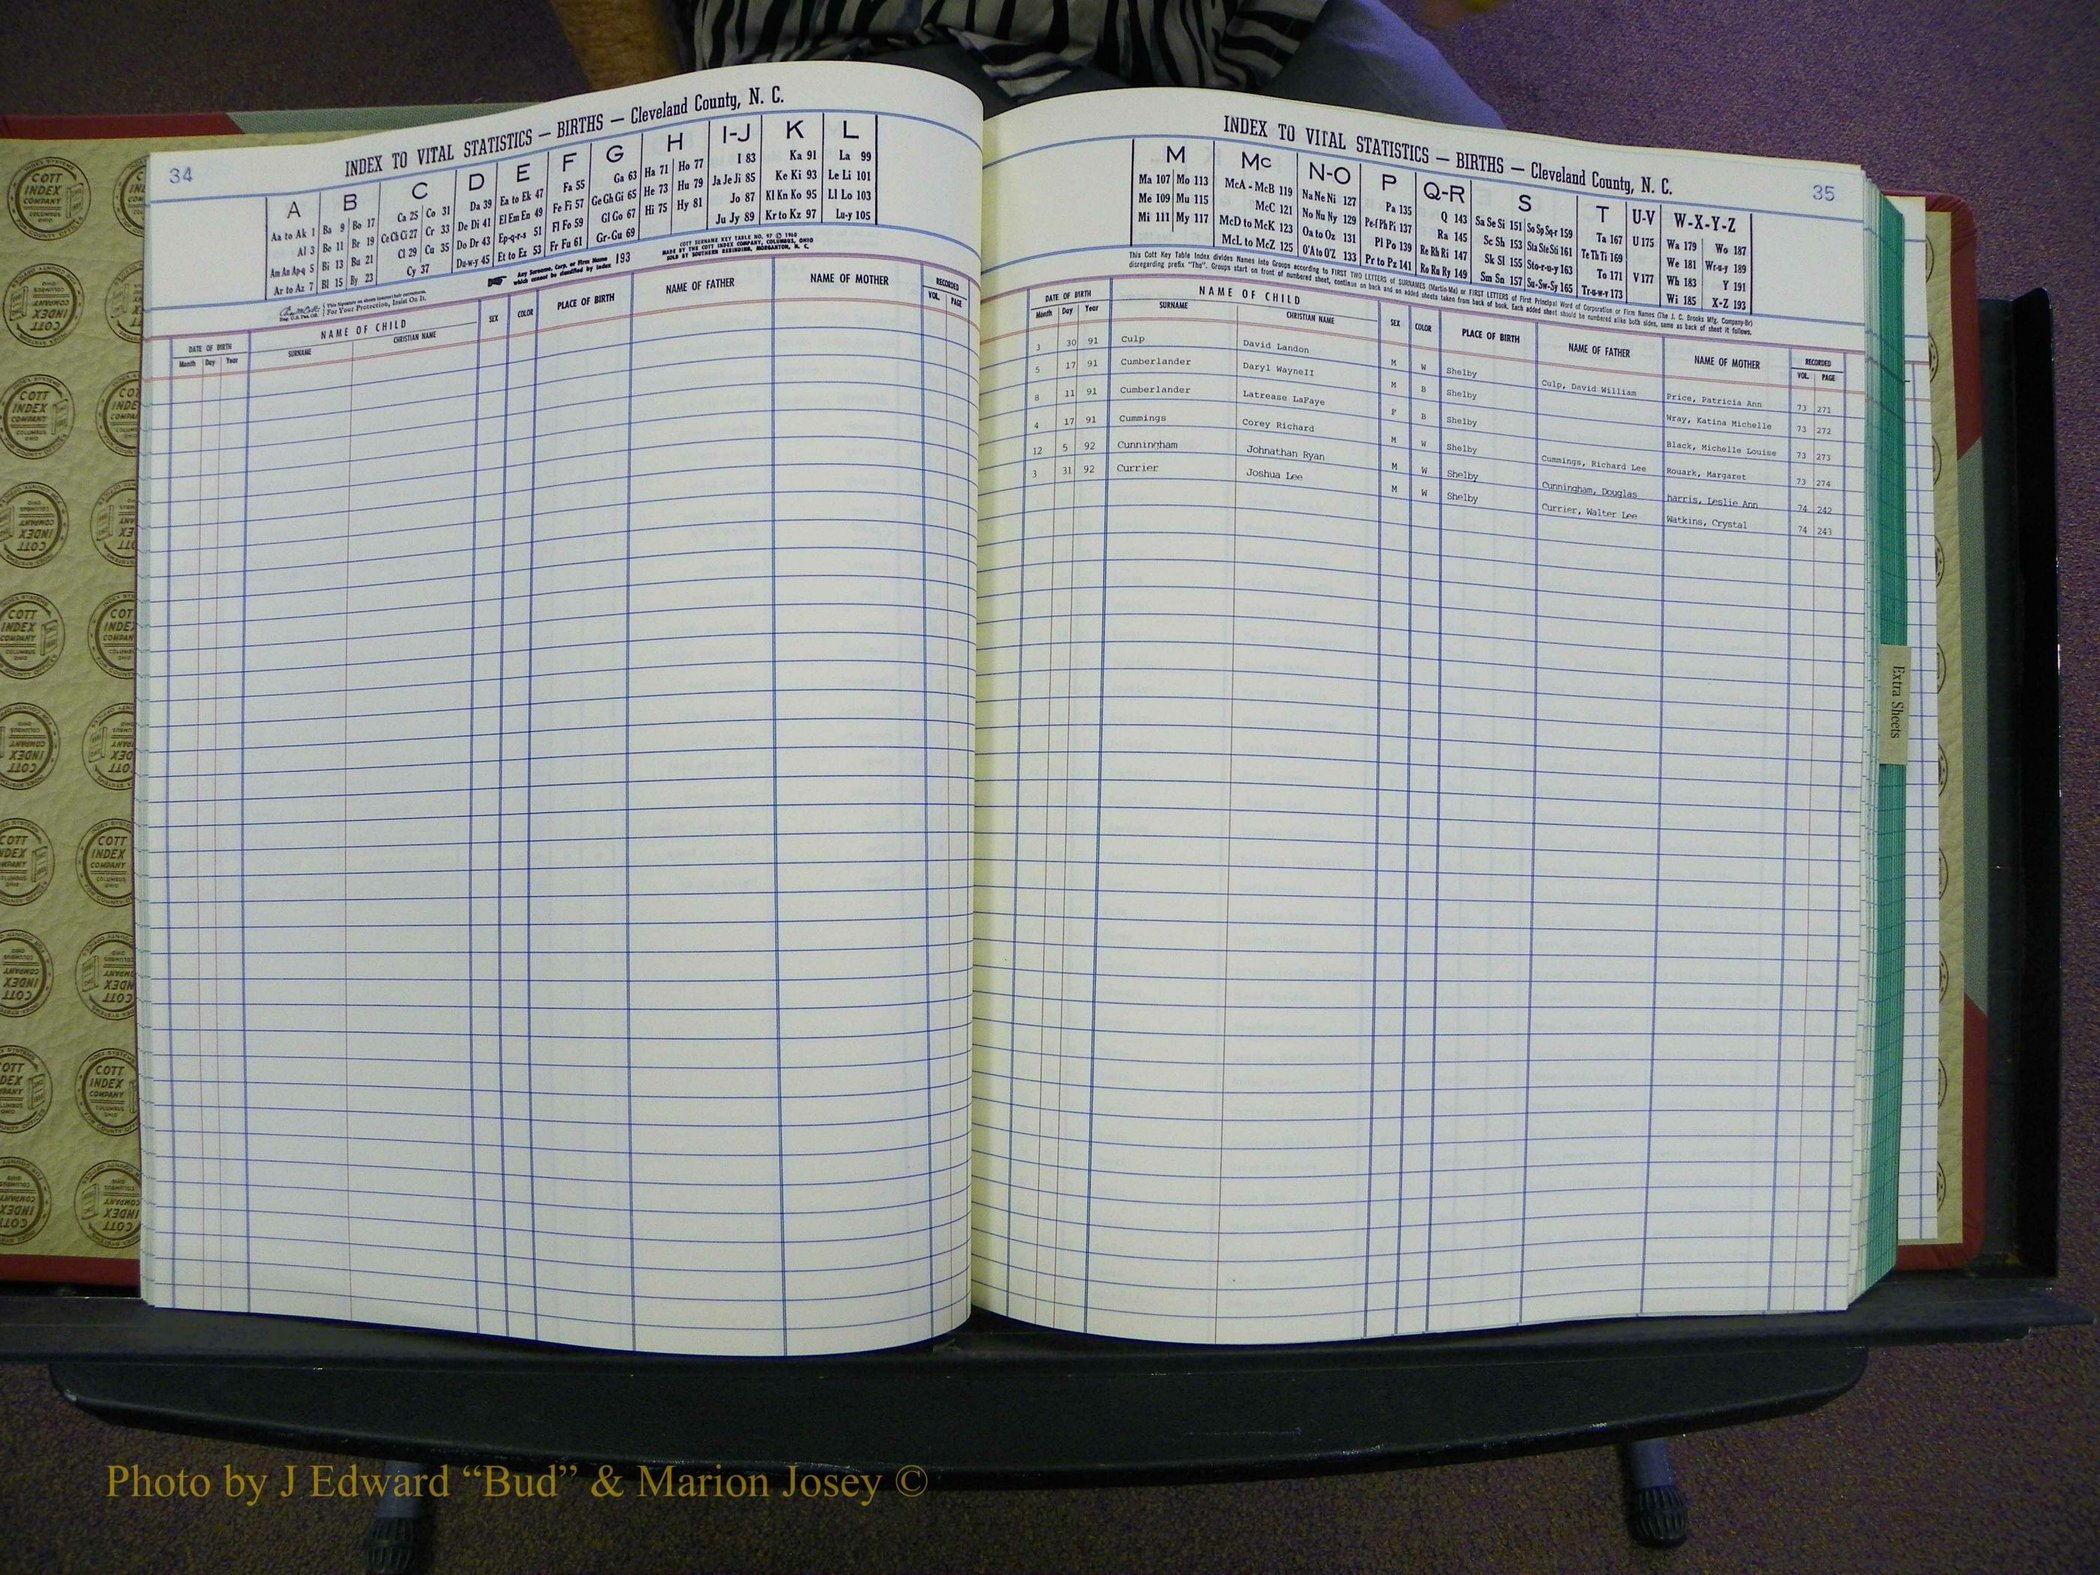 34
INDEX TO VITAL STATISTICS — BIRTHS — Cleveland County, N. C.
A B C D E F G H I-J K L
Aa to Ak 1 Ba 9 Bo 17 Ca 25 Co 31 Da 39 Ea to Ek 47 Fa 55 Ga 63 Ha 71 Ho 77 I 83 Ka 91 La 99
Al 3 Be 11 Br 19 Ce Ch Ci 27 Cr 33 De Di 41 El Em En 49 Fe Fi 57 Ge Gh Gi 65 He 73 Hu 79 Ja Je Ji 85 Ke Ki 93 Le Li 101
Am An Ap-q 5 Bi 13 Bu 21 Cl 29 Cu 35 Do Dr 43 Ep-q-r-s 51 Fl Fo 59 Gl Go 67 Hi 75 Hy 81 Jo 87 Kl Kn Ko 95 Ll Lo 103
Ar to Az 7 Bl 15 By 23 Cy 37 Du-w-y 45 Et to Ez 53 Fr Fu 61 Gr-Gu 69 Ju Jy 89 Kr to Kz 97 Lu-y 105
This Signature on sheets insures their correctness.
For Your Protection, Insist On It.
Any Surname, Corp. or Firm Name which cannot be classified by Index 193
COTT SURNAME KEY TABLE NO. 97 © 1960
MADE BY THE COTT INDEX COMPANY, COLUMBUS, OHIO
SOLD BY SOUTHERN REBINDING, MORGANTON, N. C.
DATE OF BIRTH NAME OF CHILD SEX COLOR PLACE OF BIRTH NAME OF FATHER NAME OF MOTHER RECORDED
Month Day Year SURNAME CHRISTIAN NAME VOL. PAGE
35
INDEX TO VITAL STATISTICS — BIRTHS — Cleveland County, N. C.
M Mc N-O P Q-R S T U-V W-X-Y-Z
Ma 107 Mo 113 McA - McB 119 Na Ne Ni 127 Pa 135 Q 143 Sa Se Si 151 So Sp Sq-r 159 Ta 167 U 175 Wa 179 Wo 187
Me 109 Mu 115 McC 121 No Nu Ny 129 Pe-f Ph Pi 137 Ra 145 Sc Sh 153 Sta Ste Sti 161 Te Th Ti 169 We 181 Wr-u-y 189
Mi 111 My 117 McD to McK 123 Oa to Oz 131 Pl Po 139 Re Rh Ri 147 Sk Sl 155 Sto-r-u-y 163 To 171 V 177 Wh 183 Y 191
McL to McZ 125 O'A to O'Z 133 Pr to Pz 141 Ro Ru Ry 149 Sm Sn 157 Su-Sw-Sy 165 Tr-u-w-y 173 Wi 185 X-Z 193
This Cott Key Table Index divides Names into Groups according to FIRST TWO LETTERS of SURNAMES (Martin-Ma) or FIRST LETTERS of First Principal Word of Corporation or Firm Names (The J. C. Brooks Mfg. Company-Br)
disregarding prefix "The". Groups start on front of numbered sheet, continue on back and on added sheets taken from back of book. Each added sheet should be numbered alike both sides, same as back of sheet it follows.
DATE OF BIRTH NAME OF CHILD SEX COLOR PLACE OF BIRTH NAME OF FATHER NAME OF MOTHER RECORDED
Month Day Year SURNAME CHRISTIAN NAME VOL. PAGE
3 30 91 Culp David Landon M W Shelby Culp, David William Price, Patricia Ann 73 271
5 17 91 Cumberlander Daryl WayneII M B Shelby Wray, Katina Michelle 73 272
8 11 91 Cumberlander Latrease LaFaye F B Shelby Black, Michelle Louise 73 273
4 17 91 Cummings Corey Richard M W Shelby Cummings, Richard Lee Rouark, Margaret 73 274
12 5 92 Cunningham Johnathan Ryan M W Shelby Cunningham, Douglas harris, Leslie Ann 74 242
3 31 92 Currier Joshua Lee M W Shelby Currier, Walter Lee Watkins, Crystal 74 243
Extra Sheets
COTT INDEX COMPANY COLUMBUS OHIO
Photo by J Edward “Bud” & Marion Josey ©